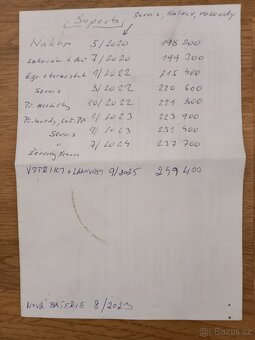 (Superb) Servis, Haldex, rozvody
Nákup 5/2020 198 200
Lakování 7/2020 199 300
Egr + termostat 1/2022 215 400
Servis 3/2022 220 600
Př. destičky 10/2022 221 800
1/2023 223 900
Servis 9/2023 231 400
" 7/2024 237 700
Žárovky Xenon
VSTŘIKY + 9/2025 249 400
NOVÁ BATERIE 8/2023
Bazoš.cz